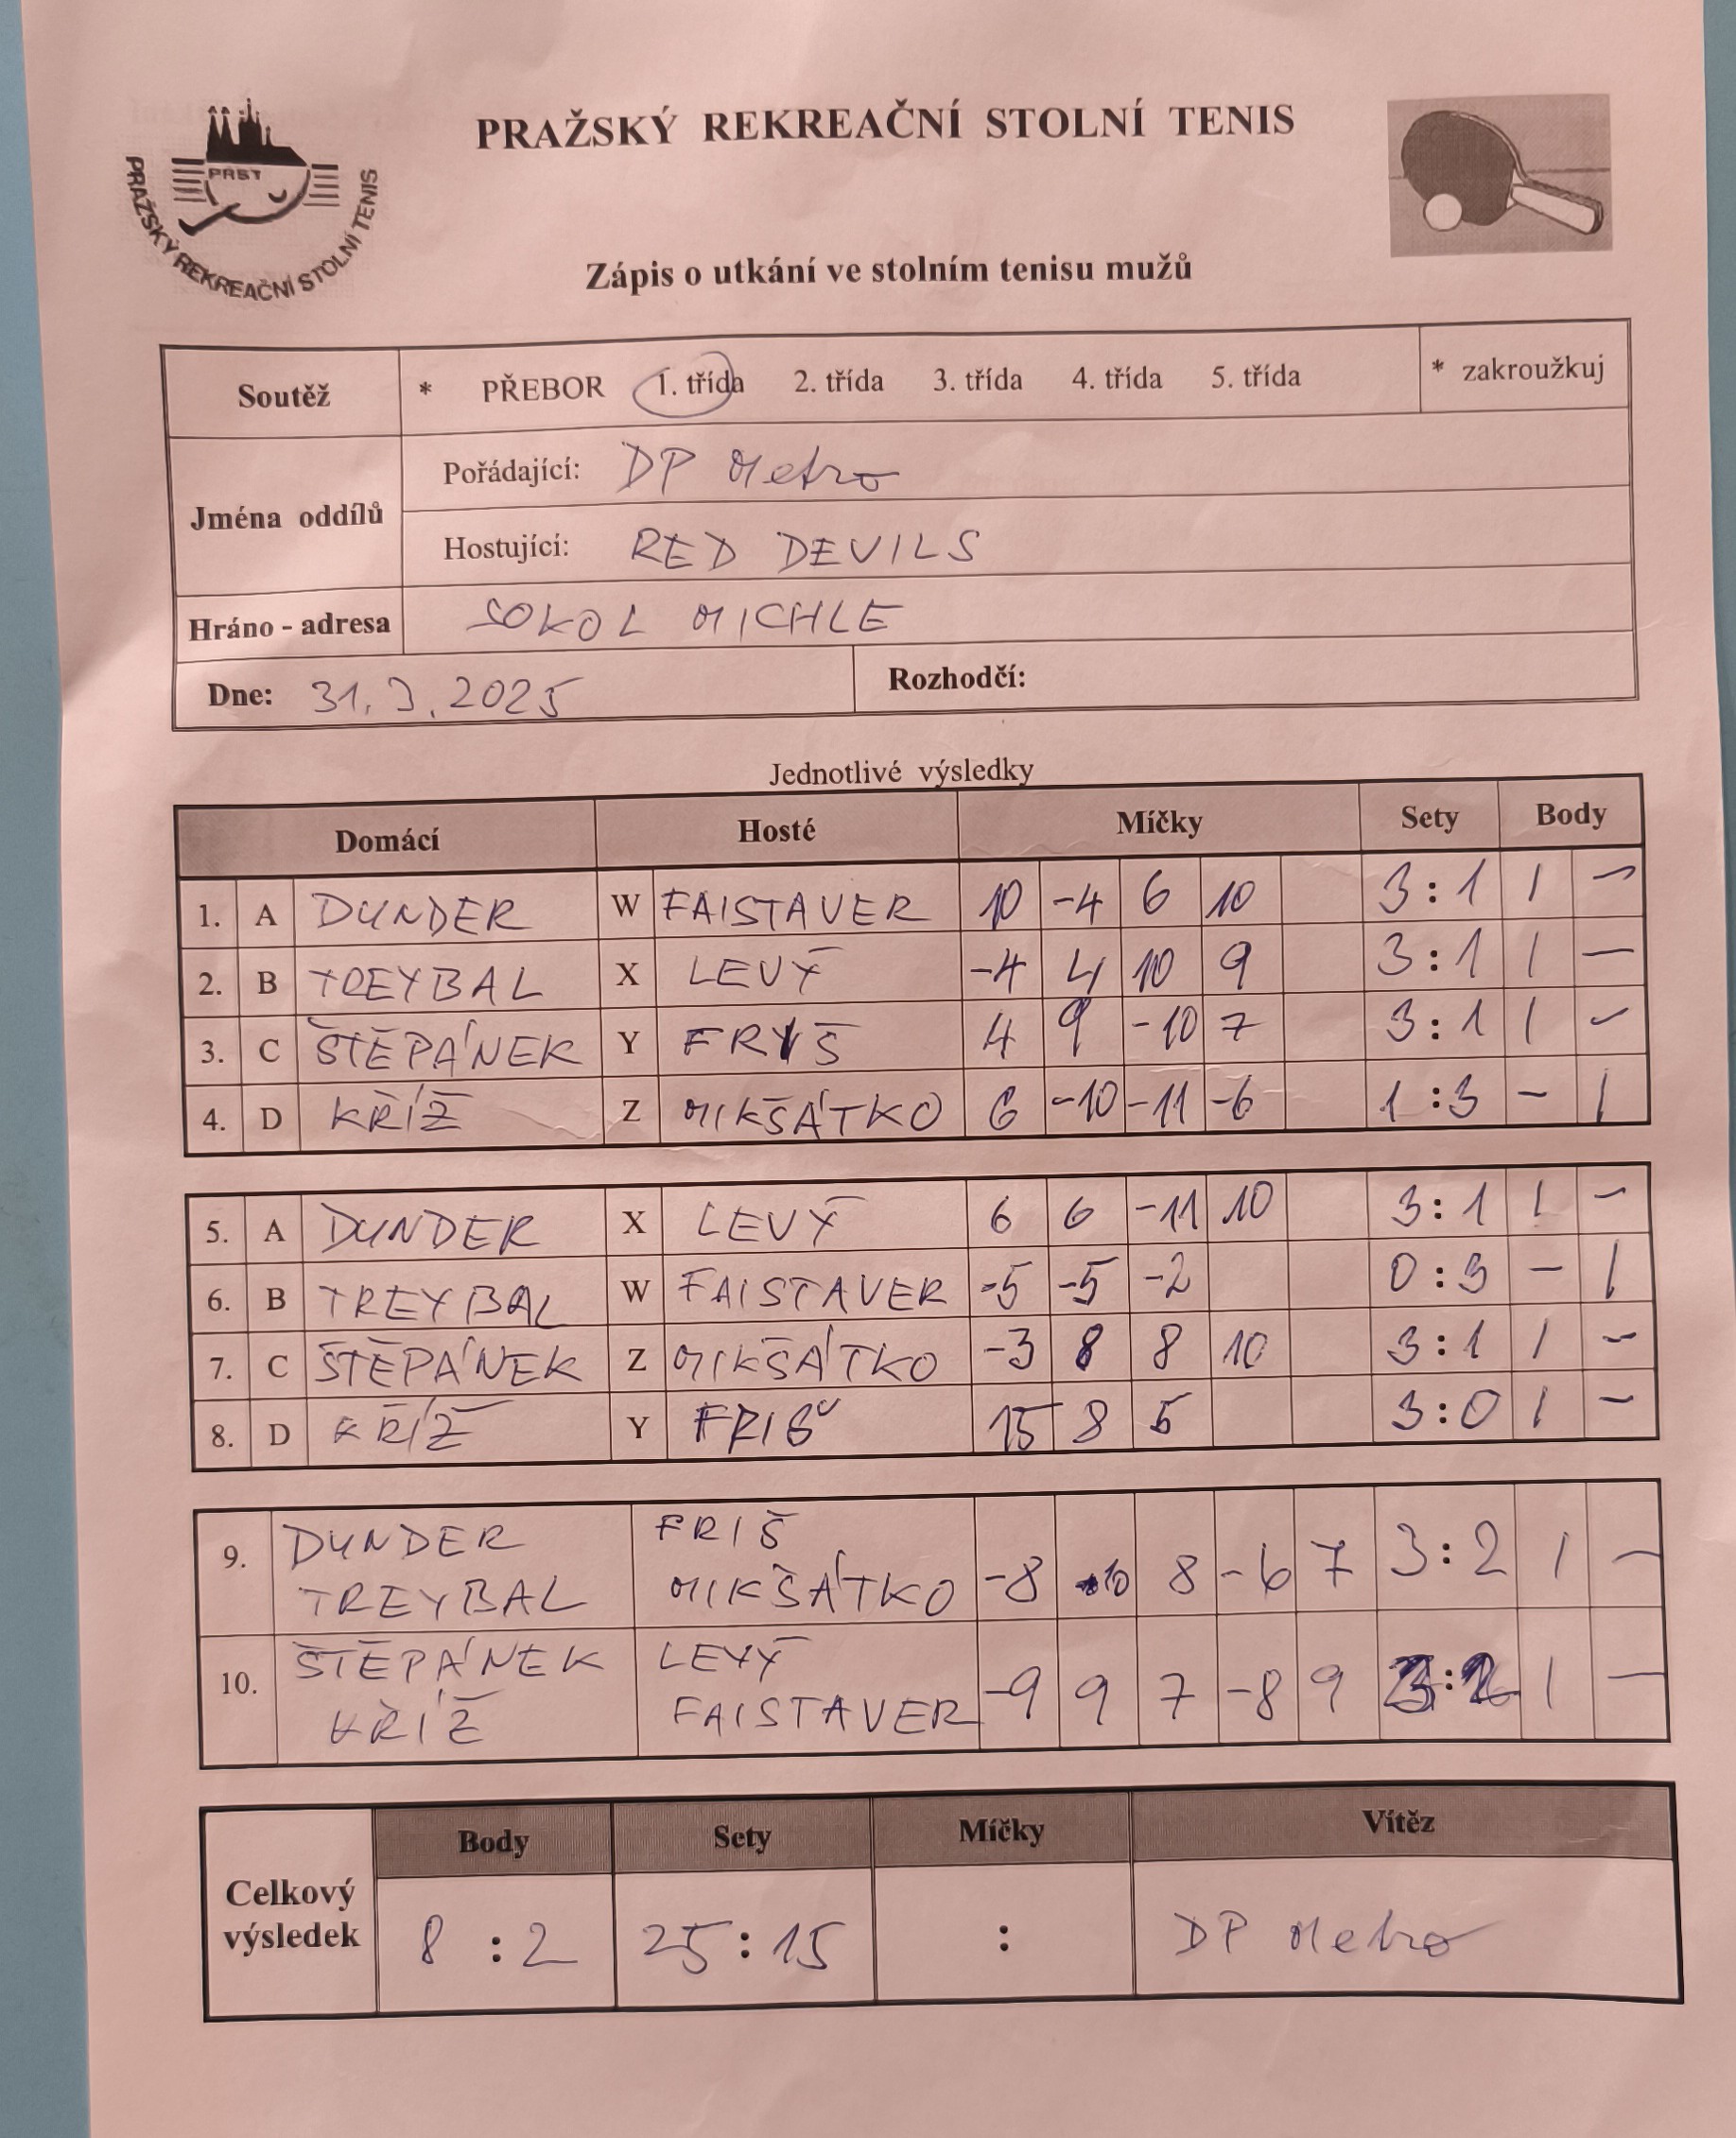 PRAŽSKÝ REKREAČNÍ STOLNÍ TENIS
PRST
PRAŽSKÝ REKREAČNÍ STOLNÍ TENIS
Zápis o utkání ve stolním tenisu mužů
Soutěž * PŘEBOR 1. třída 2. třída 3. třída 4. třída 5. třída * zakroužkuj
Jména oddílů
Pořádající: DP Metro
Hostující: RED DEVILS
Hráno - adresa SOKOL MICHLE
Dne: 31.3.2025 Rozhodčí:
Jednotlivé výsledky
Domácí Hosté Míčky Sety Body
1. A DUNDER W FAISTAVER 10 -4 6 10 3:1 1 -
2. B TREYBAL X LEVÝ -4 4 10 9 3:1 1 -
3. C ŠTĚPÁNEK Y FRYŠ 4 9 -10 7 3:1 1 -
4. D KŘÍŽ Z MIKŠÁTKO 6 -10 -11 -6 1:3 - 1
5. A DUNDER X LEVÝ 6 6 -11 10 3:1 1 -
6. B TREYBAL W FAISTAVER -5 -5 -2 0:3 - 1
7. C ŠTĚPÁNEK Z MIKŠÁTKO -3 8 8 10 3:1 1 -
8. D KŘÍŽ Y FRIŠ 15 8 5 3:0 1 -
9. DUNDER FRIŠ
TREYBAL MIKŠÁTKO -8 10 8 -6 7 3:2 1 -
10. ŠTĚPÁNEK LEVÝ
KŘÍŽ FAISTAVER -9 9 7 -8 9 3:2 1 -
Celkový výsledek
Body Sety Míčky Vítěz
8:2 25:15 : DP Metro